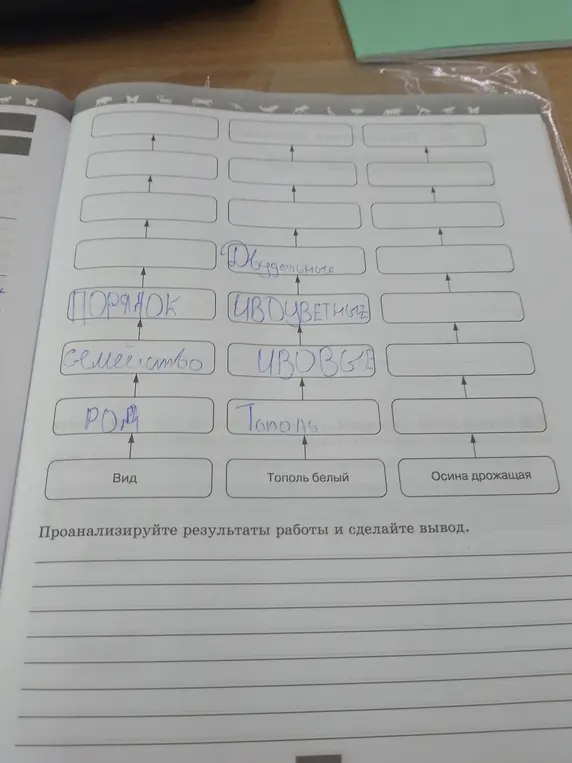 Двудольные
ПОРЯДОК
ИВОЦВЕТНЫЕ
семейство
ИВОВЫЕ
РОД
Тополь
Вид
Тополь белый
Осина дрожащая
Проанализируйте результаты работы и сделайте вывод.